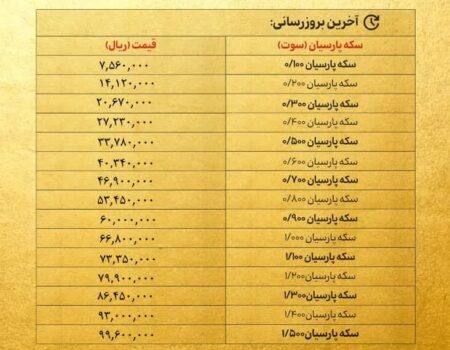 آخرین بروزرسانی:
سکه پارسیان (سوت) قیمت (ریال)
سکه پارسیان ۰/۱۰۰ ۷,۵۶۰,۰۰۰
سکه پارسیان ۰/۲۰۰ ۱۴,۱۲۰,۰۰۰
سکه پارسیان ۰/۳۰۰ ۲۰,۶۷۰,۰۰۰
سکه پارسیان ۰/۴۰۰ ۲۷,۲۳۰,۰۰۰
سکه پارسیان ۰/۵۰۰ ۳۳,۷۸۰,۰۰۰
سکه پارسیان ۰/۶۰۰ ۴۰,۳۴۰,۰۰۰
سکه پارسیان ۰/۷۰۰ ۴۶,۹۰۰,۰۰۰
سکه پارسیان ۰/۸۰۰ ۵۳,۴۵۰,۰۰۰
سکه پارسیان ۰/۹۰۰ ۶۰,۰۰۰,۰۰۰
سکه پارسیان ۱/۰۰۰ ۶۶,۸۰۰,۰۰۰
سکه پارسیان ۱/۱۰۰ ۷۳,۳۵۰,۰۰۰
سکه پارسیان ۱/۲۰۰ ۷۹,۹۰۰,۰۰۰
سکه پارسیان ۱/۳۰۰ ۸۶,۴۵۰,۰۰۰
سکه پارسیان ۱/۴۰۰ ۹۳,۰۰۰,۰۰۰
سکه پارسیان ۱/۵۰۰ ۹۹,۶۰۰,۰۰۰